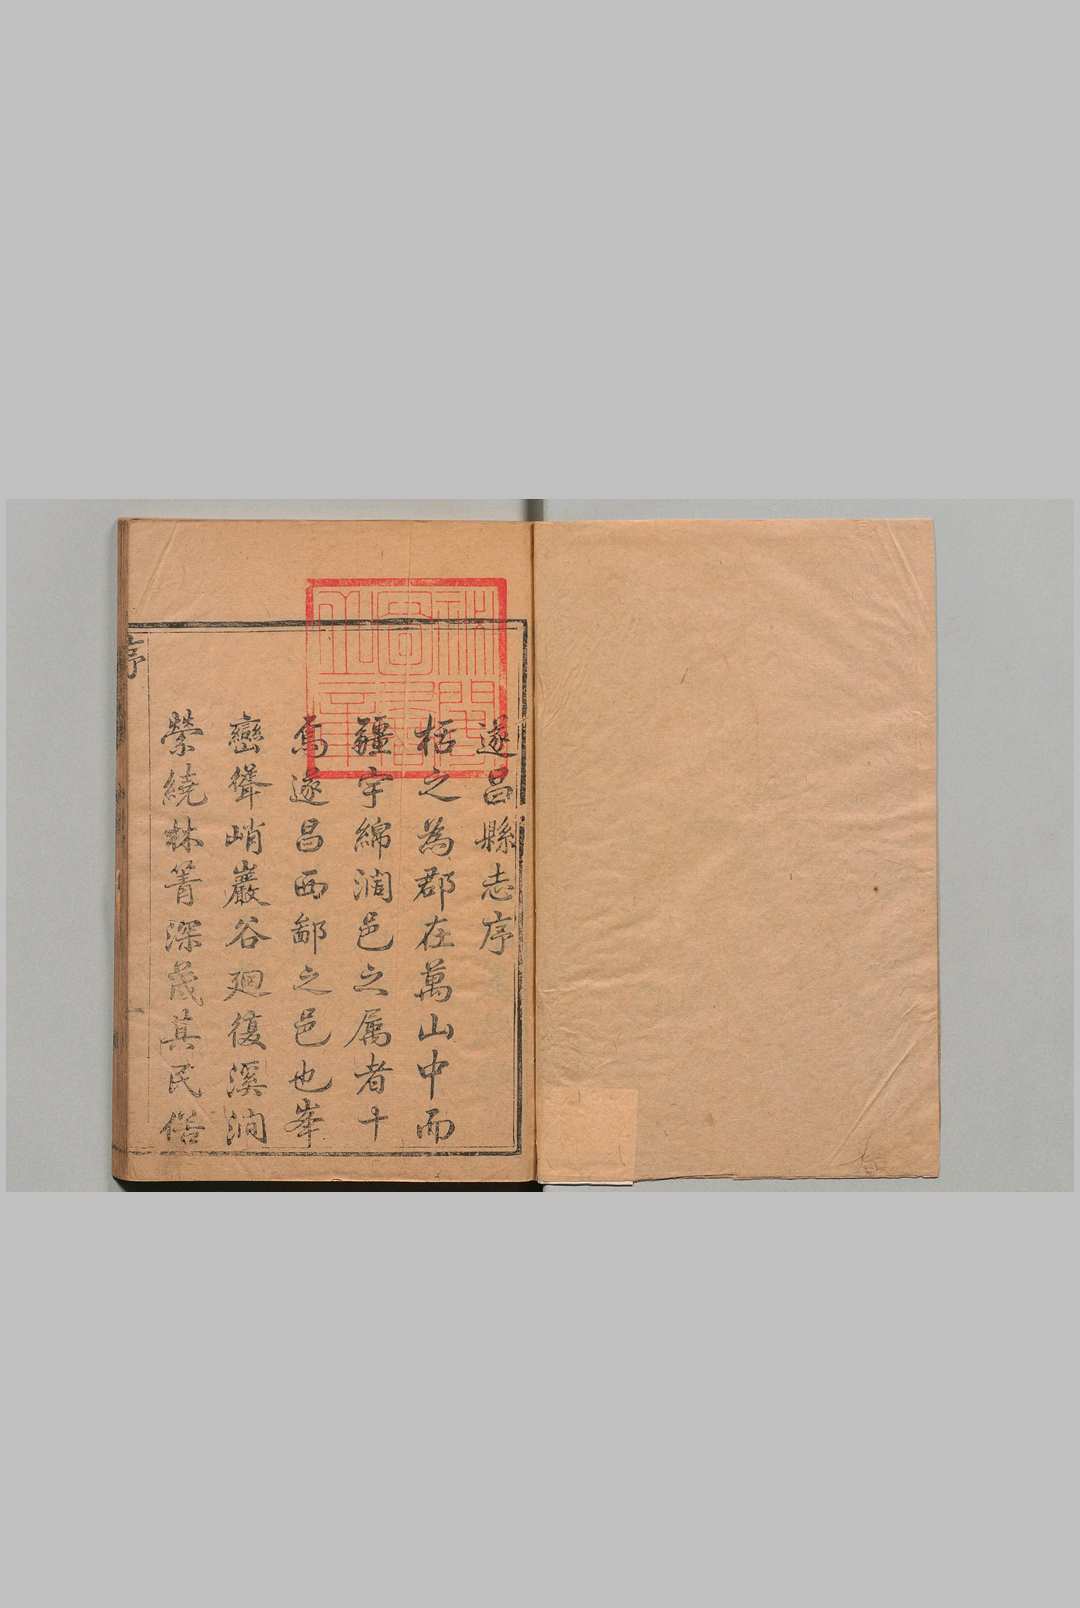 遂昌縣志序
栝之為郡在萬山中而
疆宇綿濶邑之属者十
焉遂昌西鄙之邑也峯
巒聳峭巖谷廻復溪澗
縈繞林箐深茂其民俗
序
一
秘閣圖書之章